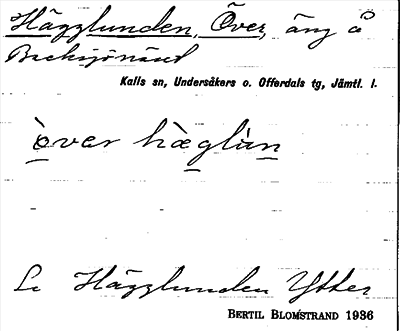 Hägglunden, Över, äng å
Backsjönäset
Kalls sn, Undersåkers o. Offerdals tg, Jämtl. l.
òvar hæglùn
Se Hägglunden Ytter
BERTIL BLOMSTRAND 1936